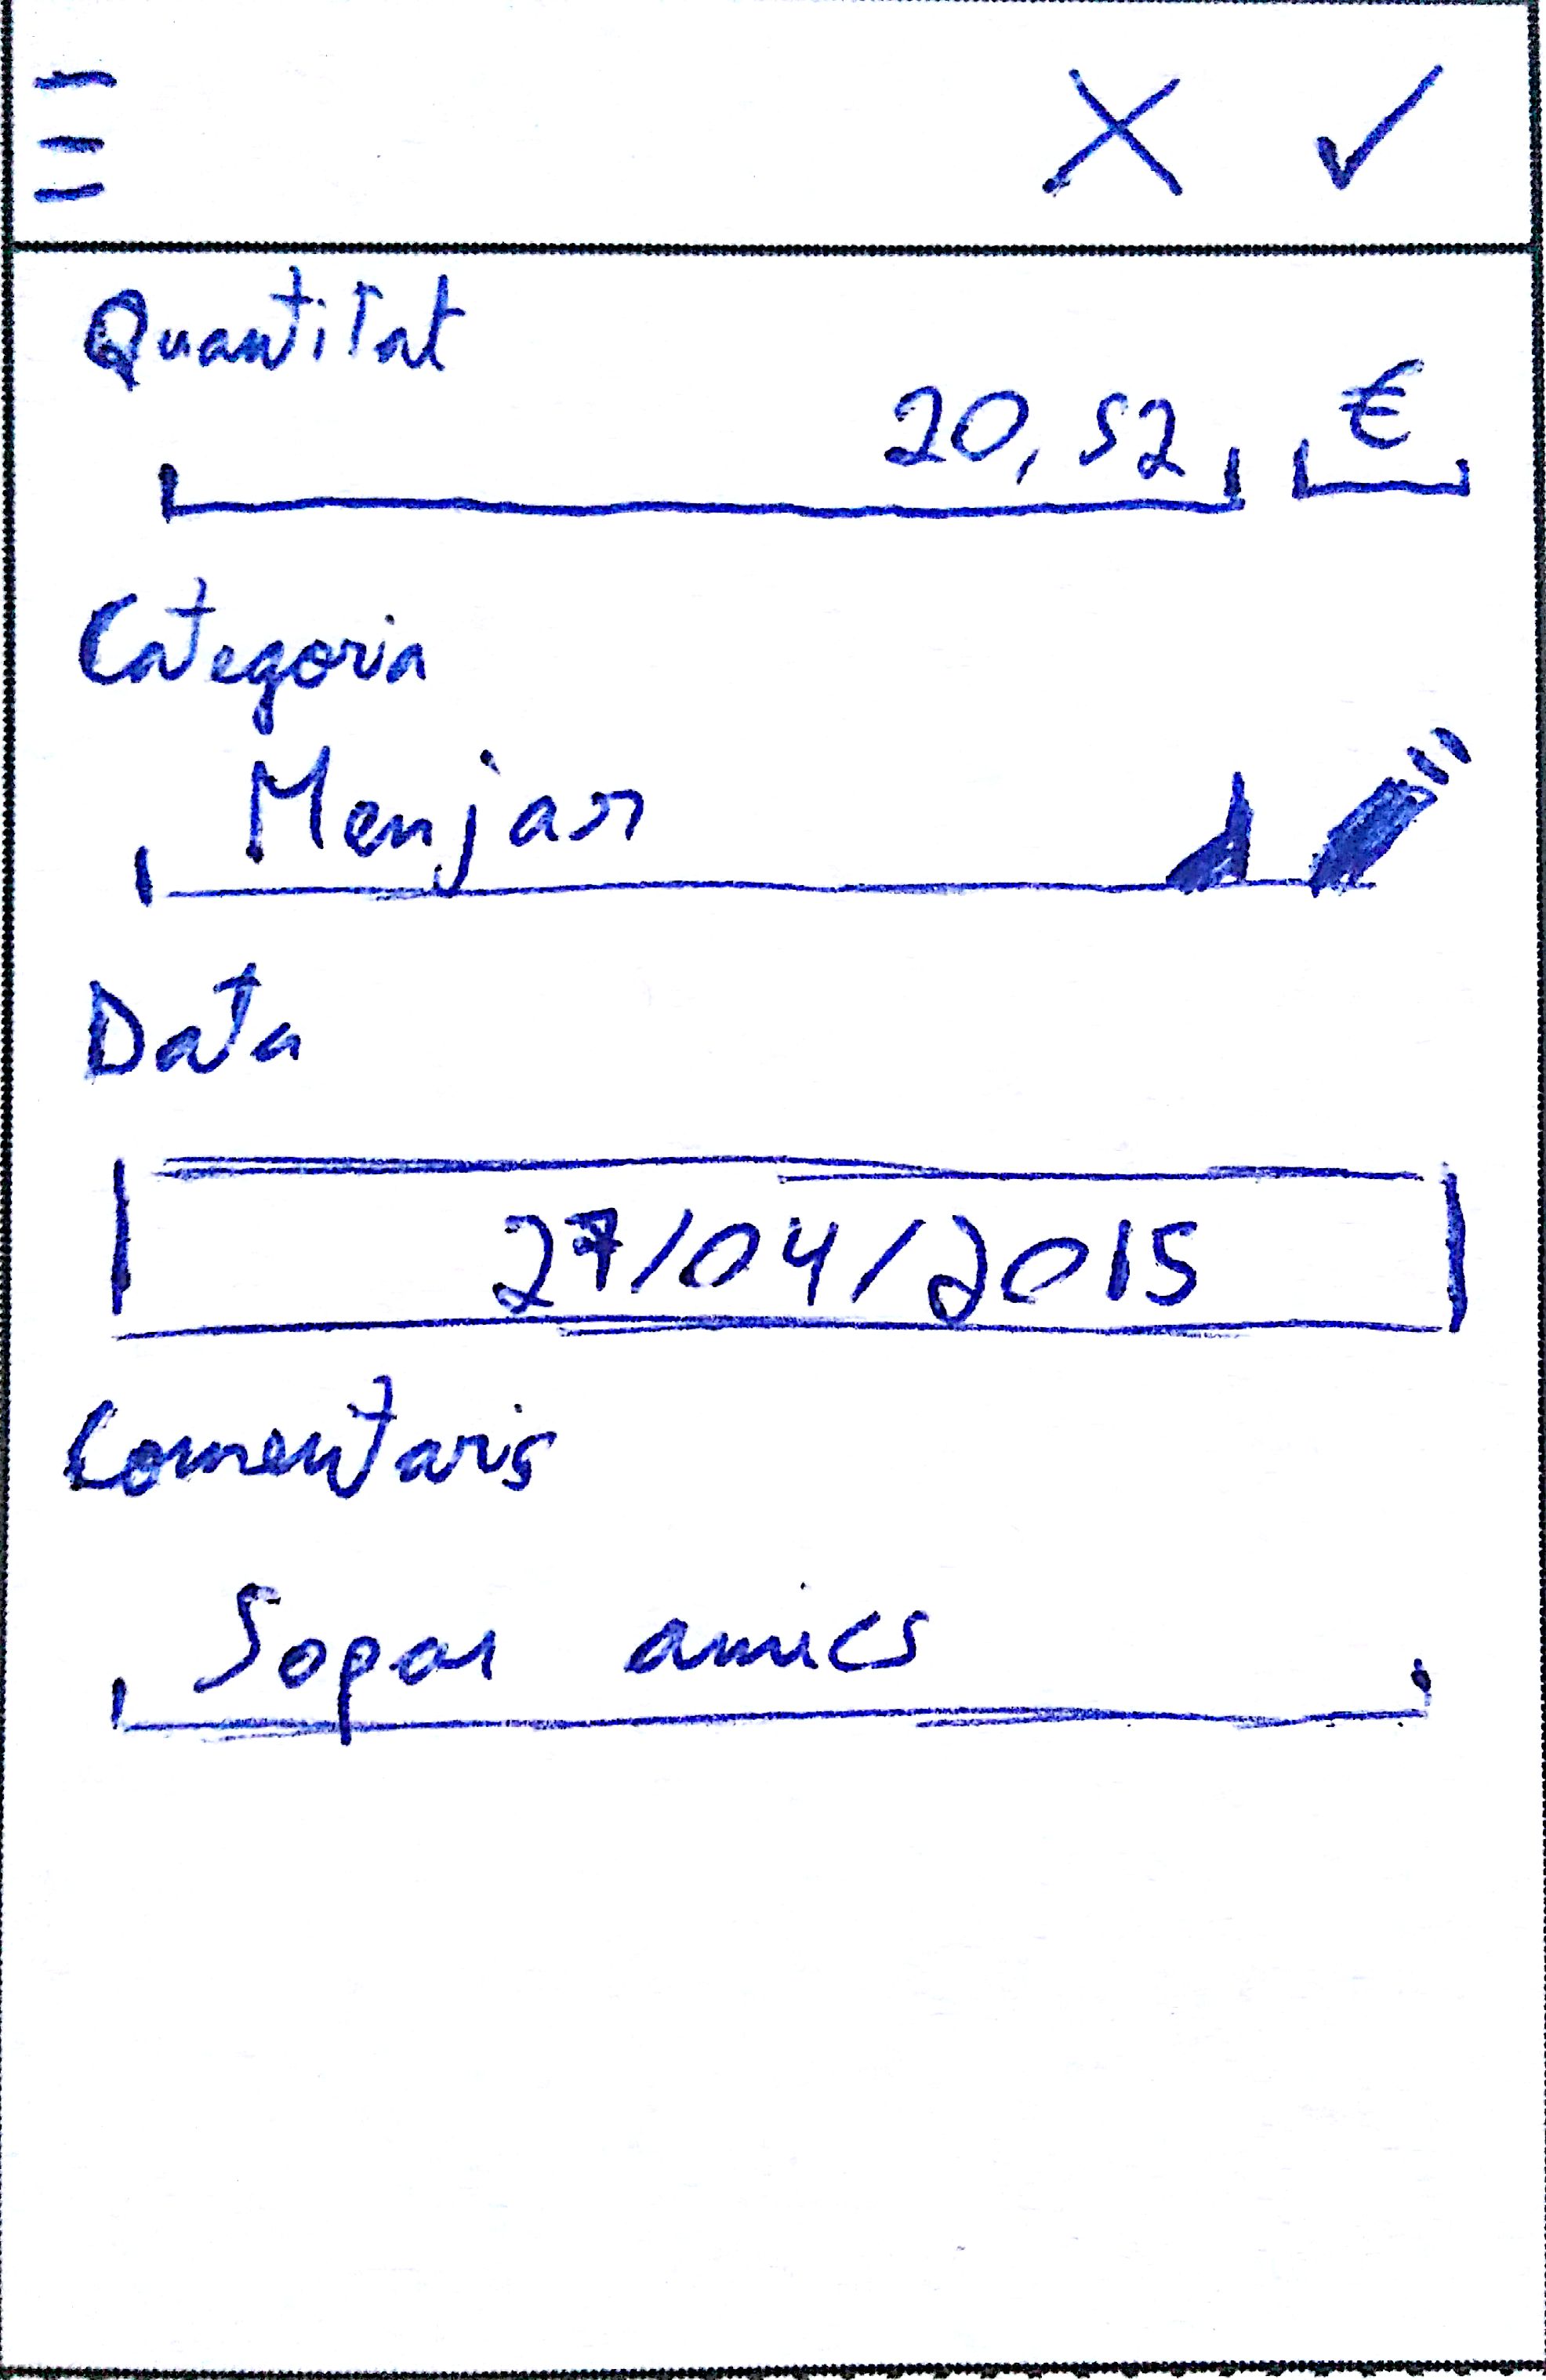 Quantitat
20,52 €
Categoria
Menjar
Data
27/04/2015
Comentaris
Sopar amics